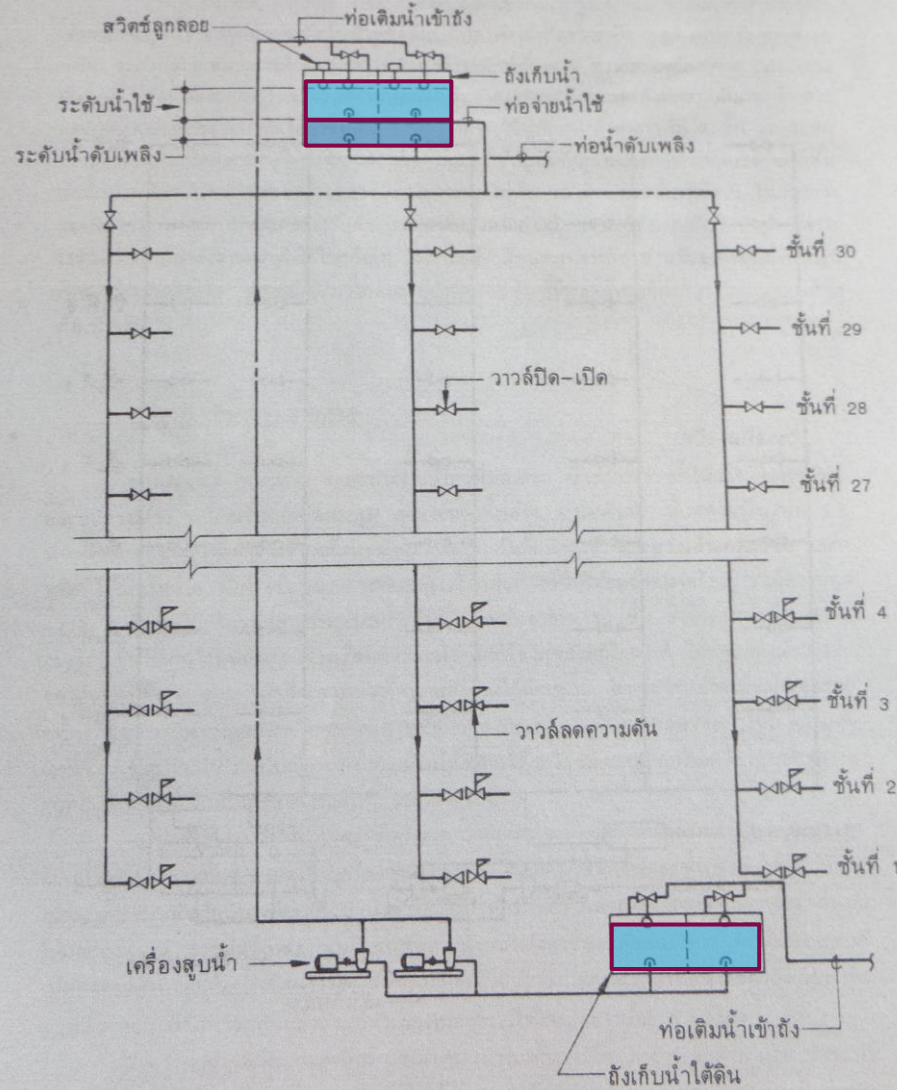 ท่อเติมน้ำเข้าถัง
สวิตช์ลูกลอย
ถังเก็บน้ำ
ระดับน้ำใช้
ท่อจ่ายน้ำใช้
ระดับน้ำดับเพลิง
ท่อน้ำดับเพลิง
ชั้นที่ 30
ชั้นที่ 29
วาวล์ปิด-เปิด
ชั้นที่ 28
ชั้นที่ 27
ชั้นที่ 4
ชั้นที่ 3
วาวล์ลดความดัน
ชั้นที่ 2
ชั้นที่ 1
เครื่องสูบน้ำ
ท่อเติมน้ำเข้าถัง
ถังเก็บน้ำใต้ดิน